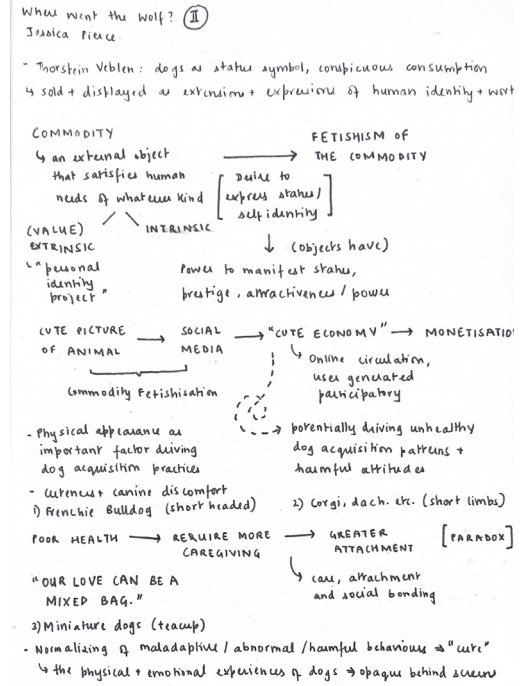 Where went the wolf? II
Jessica Pierce
- Thorstein Veblen: dogs as status symbol, conspicuous consumption
↳ sold + displayed as extensions + expressions of human identity +
COMMODITY → FETISHISM OF THE COMMODITY
↳ an external object
that satisfies human
needs of whatever kind
[Desire to
express status/
self identity]
(VALUE)
EXTRINSIC
INTRINSIC
↳ "personal
identity
project"
↓ (objects have)
Power to manifest status,
prestige, attractiveness / power
CUTE PICTURE OF ANIMAL → SOCIAL MEDIA → "CUTE ECONOMY" → MONETISATIO
↳ Online circulation,
user generated
participatory
Commodity Fetishisation
- Physical appearance as
important factor driving
dog acquisition practices
→ potentially driving unhealthy
dog acquisition patterns +
harmful attitudes
- cuteness + canine discomfort
1) Frenchie Bulldog (short headed)
2) Corgi, dach. etc. (short limbs)
POOR HEALTH → REQUIRE MORE CAREGIVING → GREATER ATTACHMENT [PARADOX]
↳ care, attachment
and social bonding
"OUR LOVE CAN BE A
MIXED BAG."
3) Miniature dogs (teacup)
- Normalizing of maladaptive / abnormal / harmful behaviours → "cute"
↳ the physical + emotional experiences of dogs → opaque behind screens